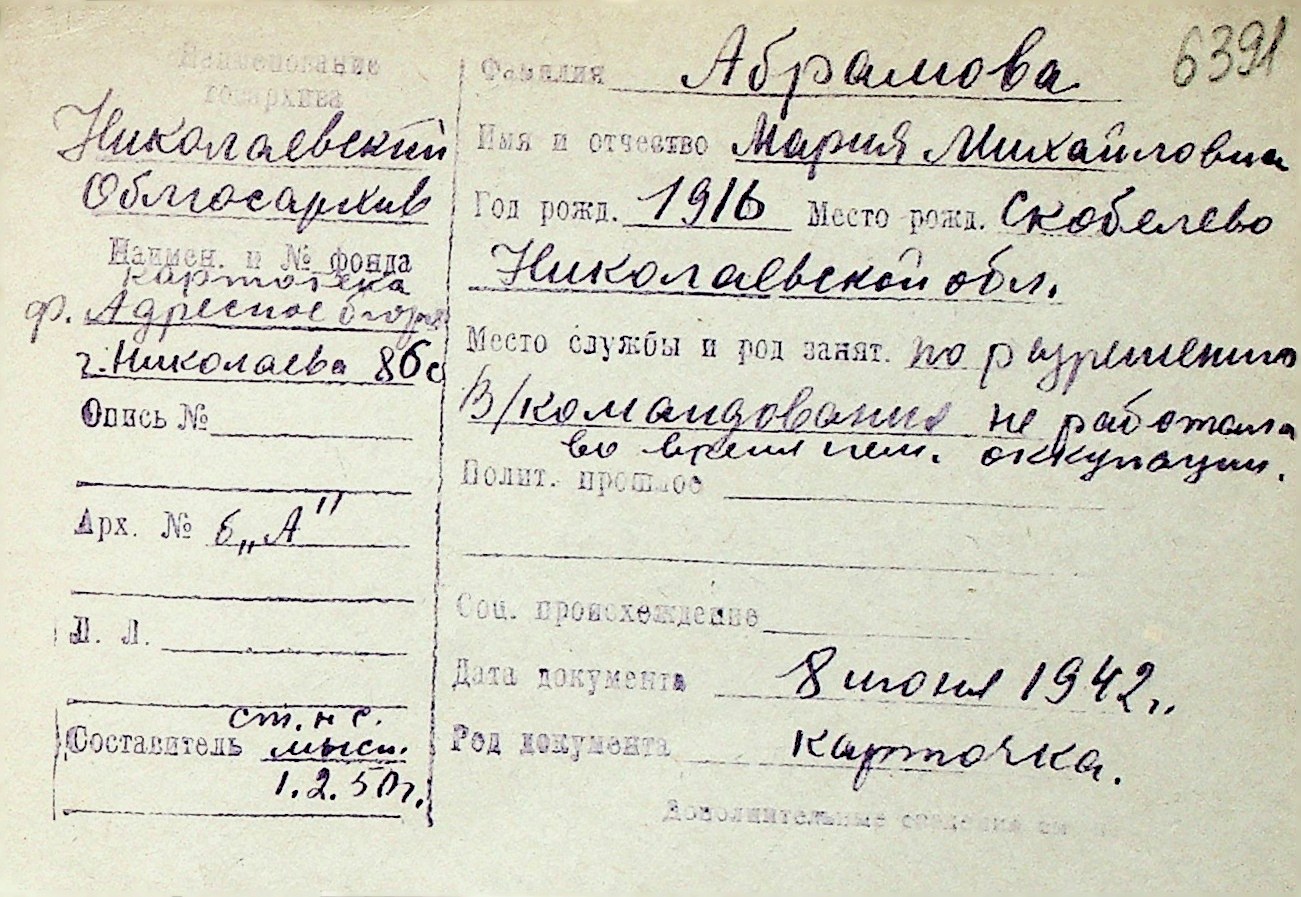 6391
Наименование
госархива
Николаевский
Облгосархив
Наимен. и № фонда
картотека
ф. Адресное бюро
г. Николаева 86с
Опись №
Арх. № 6 „А"
Л. Л.
Составитель ст. н с.
мысп.
1.2.50 г.
Фамилия Абрамова
Имя и отчество Мария Михайловна
Год рожд. 1916 Место рожд. Скобелево
Николаевской обл.
Место службы и род занят. по разрешению
В/командования не работала
во время нем. оккупации.
Полит. прошлое
Соц. происхождение
Дата документа 8 июня 1942 г.
Род документа карточка.
Дополнительные сведения см